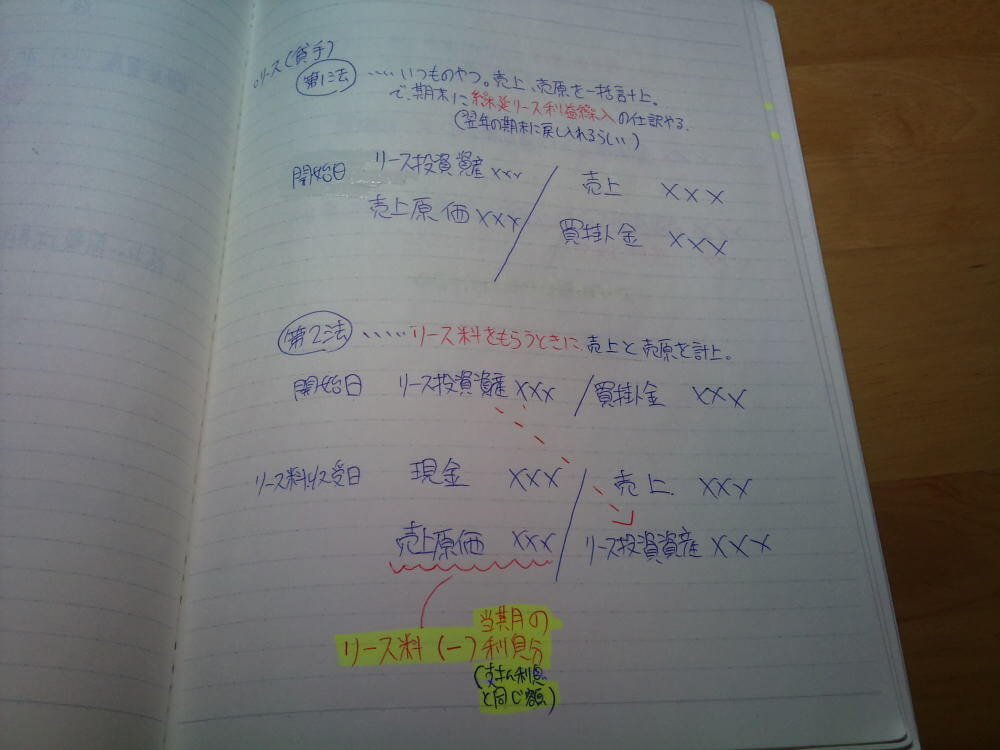 。リース(貸手)
第1法 ・・・・いつものやつ。売上、売原を一括計上。
で、期末に繰延リース利益繰入の仕訳やる。
(翌年の期末に戻し入れるらしい)
開始日 リース投資資産 xxx / 売上 xxx
売上原価 xxx / 買掛金 xxx
第2法 ・・・・・リース料をもらうときに、売上と売原を計上。
開始日 リース投資資産 xxx / 買掛金 xxx
リース料収受日 現金 xxx / 売上 xxx
売上原価 xxx / リース投資資産 xxx
当期の
リース料(ー)利息分
(支払利息
と同じ額)